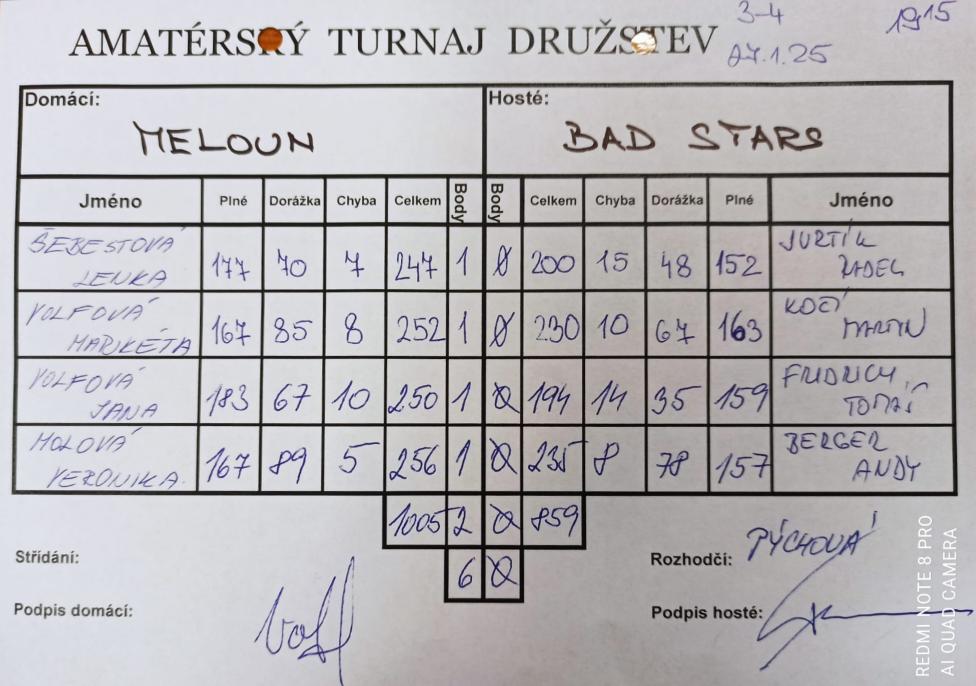 3-4
19 15
AMATÉRSKÝ TURNAJ DRUŽSTEV
27.1.25
Domácí: Hosté:
MELOUN BAD STARS
Jméno Plné Dorážka Chyba Celkem Body Body Celkem Chyba Dorážka Plné Jméno
ŠEBESTOVÁ JURTÍK
LENKA 177 70 7 247 1 0 200 15 48 152 RADEK
VOLFOVÁ KOČÍ
MARKÉTA 167 85 8 252 1 0 230 10 67 163 MARTIN
VOLFOVÁ FRIDRICH
JANA 183 67 10 250 1 0 194 14 35 159 TOMÁŠ
MOLOVÁ BERGER
VERONIKA 167 89 5 256 1 0 235 8 78 157 ANDY
1005 2 0 859
Střídání: 6 0 Rozhodčí: PÝCHOVÁ
Podpis domácí: Volf Podpis hosté:
REDMI NOTE 8 PRO
AI QUAD CAMERA